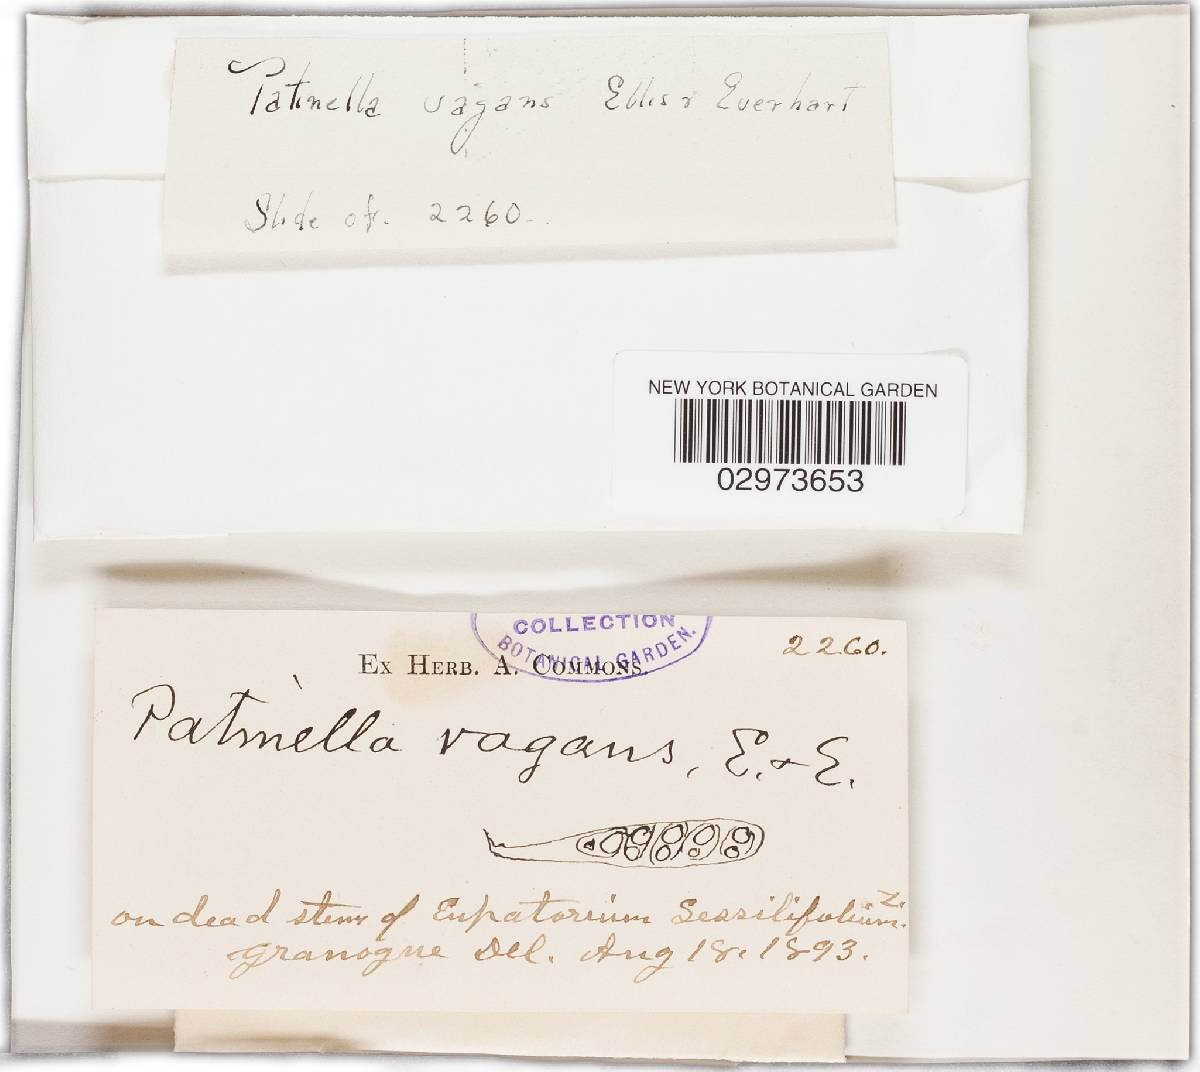 Patinella vagans Ellis & Everhart
Slide of. 2260
NEW YORK BOTANICAL GARDEN
02973653
COLLECTION
BOTANICAL GARDEN.
2260.
EX HERB. A. COMMONS.
Patinella vagans, E. & E.
on dead stems of Eupatorium Sessilifolium
Granogue Del. Aug 18. 1893.